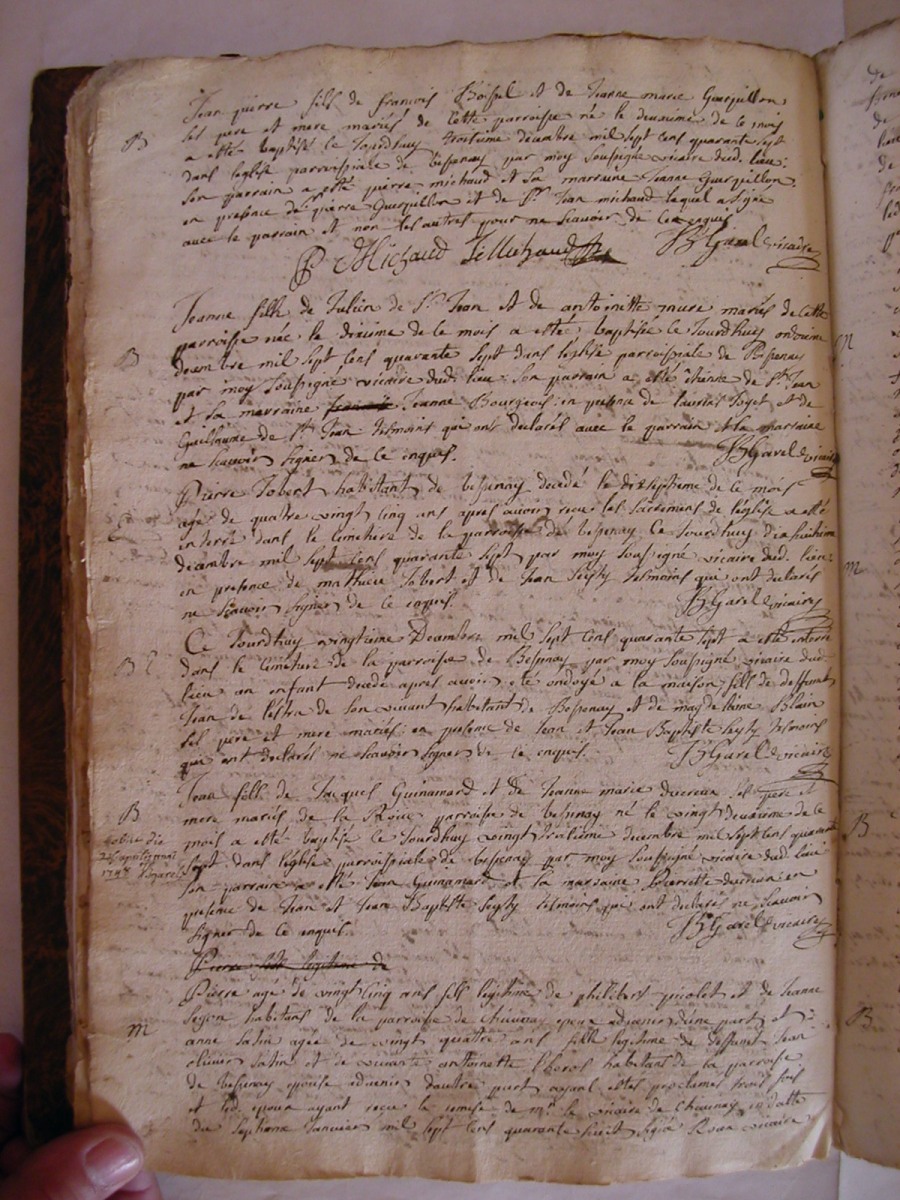 Jean pierre fils de francois Boissel et de Jeanne marie Guerpillon
ses pere et mere mariés de cette parroisse né le deuxieme de ce mois
B
a etté baptisé ce Jourdhuy troisieme decembre mil sept cens quarante sept
dans leglise parroissiale de bessenay par moy soussigné vicaire dud. lieu:
son parrain a etté pierre michaud et sa marraine Jeanne Guerpillon.
en presence de Sr pierre Guerpillon et de Sr Jean michaud lequel a signé
avec le parrain et non les autres pour ne scavoir de ce enquis
P Michaud J Michaud BGarel vicaire
Jeanne fille de Julien de St Jean et de antoinette mure mariés de cette
parroisse née le dixieme de ce mois a etté baptisée ce Jourdhuy onzieme
B
decembre mil sept cens quarante sept dans leglise parroissiale de Bessenay
par moy soussigné vicaire dud. lieu: son parrain a etté etienne de St Jean
et sa marraine Jeanne Bourgeois: en presence de laurens et de
Guillaume de St Jean tesmoins qui ont declarés avec le parrain et la marraine
ne scavoir signer de ce enquis. BGarel vicaire
Pierre Jobert habitant de bessenay decedé le dixseptieme de ce mois
agé de quatre vingt cinq ans apres avoir receu les sacremens de leglise a eté
E
enterré dans le cimetiere de la parroisse de bessenay ce Jourdhuy dixhuitieme
decembre mil sept cens quarante sept par moy soussigné vicaire dud. lieu:
en presence de mathieu Jobert et de Jean tesmoins qui ont declarés
ne scavoir signer de ce enquis. BGarel vicaire
Ce Jourdhuy vingtieme Decembre mil sept cens quarante sept a etté enterré
dans le cimetiere de la parroisse de Bessenay par moy soussigné vicaire dud.
B E
lieu un enfant decedé apres avoir eté ondoyé a la maison fils de deffunt
Jean de lestra de son vivant habitant de Bessenay et de magdelaine Blain
ses pere et mere mariés en presence de Jean et Jean Baptiste tesmoins
qui ont declarés ne scavoir signer de ce enquis. BGarel vicaire
Jean fils de Jacques Guinamard et de Jeanne marie ducreux ses pere et
mere mariés de la parroisse de bessenay né le vingt deuxieme de ce
B
mois a etté baptisé ce Jourdhuy vingt troisieme decembre mil sept cens quarante
sept dans leglise parroissiale de bessenay par moy soussigné vicaire dud. lieu
1748
son parrain a etté Jean Guinamard et sa marraine Pierrette ducreux: en
presence de Jean et Jean Baptiste tesmoins qui ont declarés ne scavoir
signer de ce enquis. BGarel vicaire
Pierre fils legitime de
Pierre agé de vingt cinq ans fils legitime de philibert picolet et de Jeanne
habitans de la parroisse de epoux advenir dune part et
M
anne Satin agée de vingt quatre ans fille legitime de deffunt Jean
olivier Satin et de vivante antoinette habitant de la parroisse
de bessenay epouse advenir dautre part ayant ettés proclamés trois fois
et led. epoux ayant receu la remise de mr. le vicaire de en datte
du septieme Janvier mil sept cens quarante huit signé vicaire